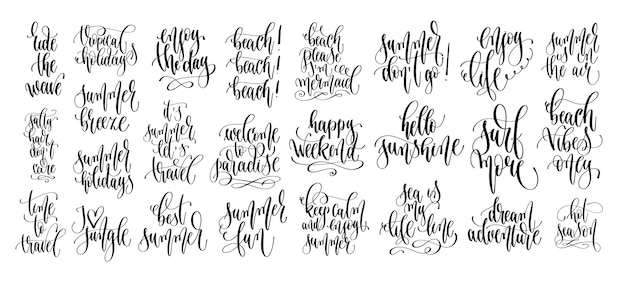 ride
the
wave
tropical
holidays
enjoy
the day
beach!
beach!
beach!
beach
please
I'm
mermaid
summer
don't go!
enjoy
life
summer in
the air
salty
hair
don't
care
summer
breeze
summer
holidays
it's
summer
let's
travel
welcome
to
paradise
happy
weekend
hello
sunshine
surf
more
beach
vibes
only
time
to
travel
I
jungle
best
summer
summer
fun
keep calm
and enjoy
summer
sea is
my
life line
dream
adventure
hot
season